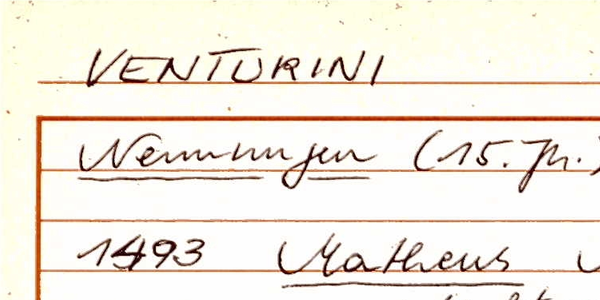 VENTURINI
Nennungen (15. Jh.)
1493 Matheus